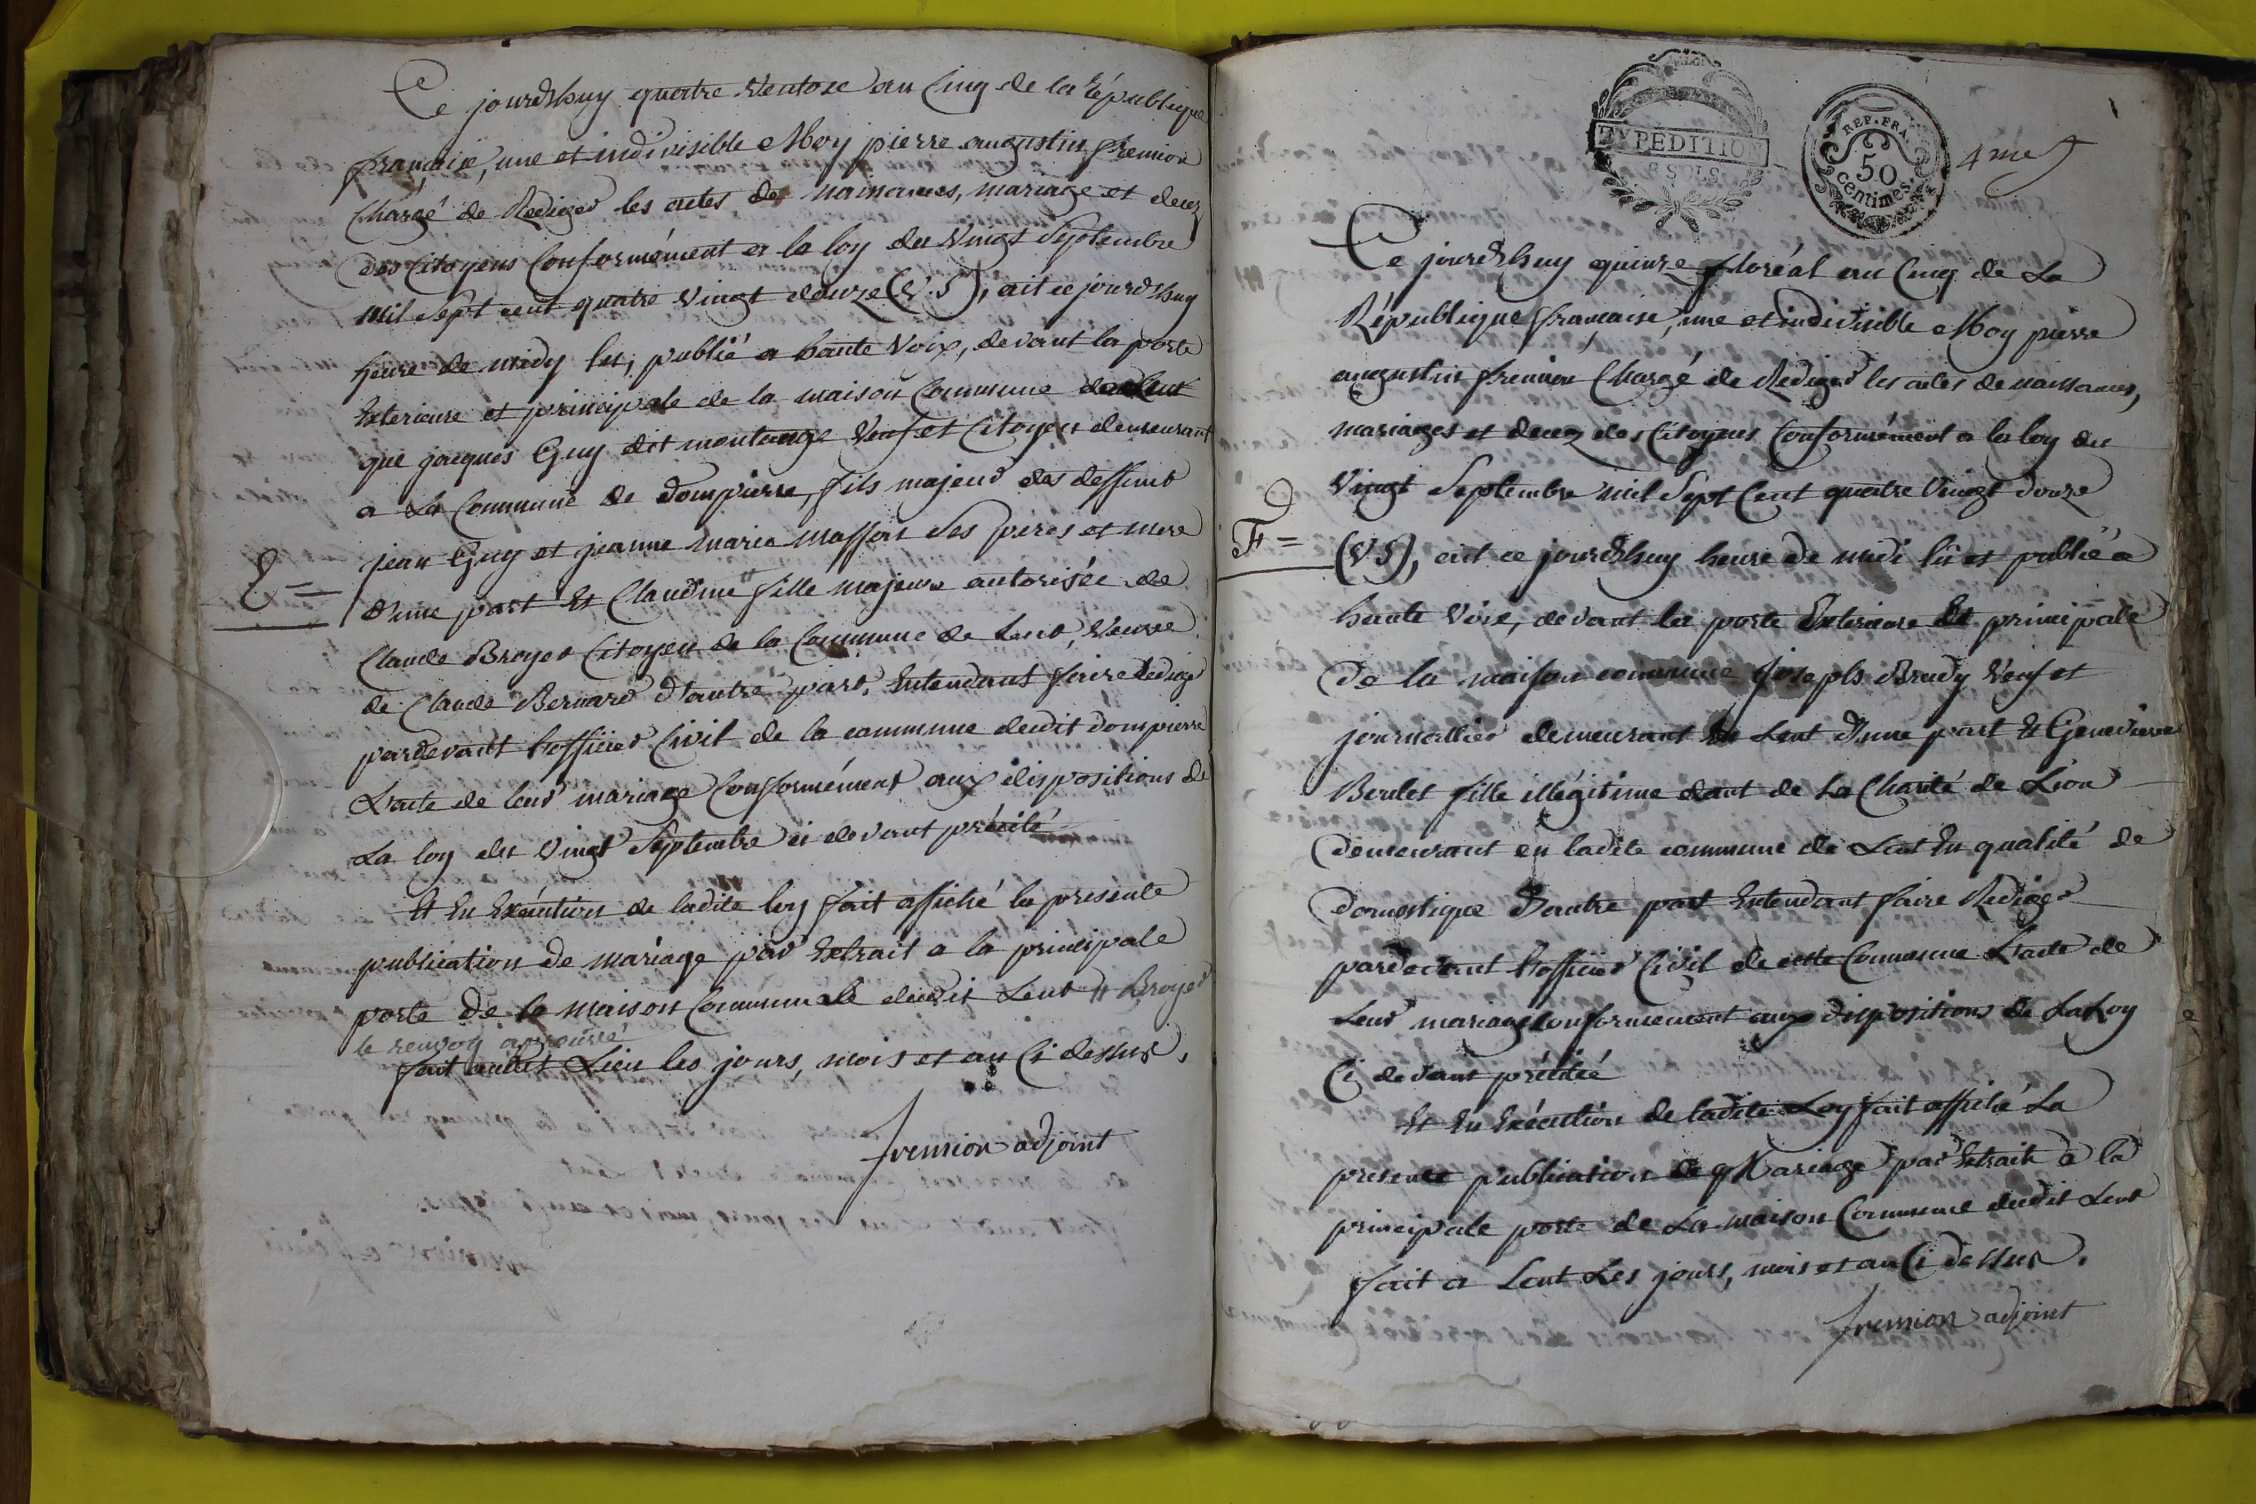 Ce jourd'huy quatre Ventose an Cinq de la République
française, une et indivisible Moy pierre augustin fremion
Chargé de Rediger les actes de naissances, mariage et decez
des Citoyens Conformément a la loy du Vingt Septembre
mil Sept cent quatre vingt douze (V.S), ait ce jourd'huy
heure de midy lu, publié a haute Voix, devant la porte
Exterieure et principale de la maison Commune
que jacques Guy dit montange Veuf et Citoyen demeurant
a La Commune de dompierre, fils majeur des deffunt
jean Guy et jeanne marie masson Ses pères et mere
E =
d'une part Et Claudine # fille majeure autorisée de
Claude Broyer Citoyen de la Commune de Lent, Veuve
de Claude Bernard D'autre part, Entendant faire Rediger
pardevant l'officier Civil de la commune dudit dompierre
L'acte de leur mariage Conformément aux dispositions de
La loy du Vingt Septembre ci devant précité
Et En Exécution de ladite loy fait affiché la presente
publication de mariage par Extrait a la principale
porte De la maison Communale dudit Lent # Broyer
le renvoy approuvé
fait audit Lieu les jours, mois et an Ci dessus.
fremion adjoint
EXPEDITION
6 SOLS
REP. FRA.
50
centimes.
4 me
Ce jourd'huy quinze floréal an Cinq de La
République française, une et indivisible Moy pierre
augustin fremion Chargé de Rediger les actes de naissances,
mariages et decez des Citoyens Conformément a la loy du
Vingt Septembre mil Sept Cent quatre Vingt douze
F =
(V S), ait ce jourd'huy heure de midi lu et publié a
haute Voix, devant la porte Exterieure Et principale
De la maison commune joseph Brudy Veuf et
journallier demeurant En Lent D'une part Et Genevieve
Boulet fille illégitime dont de La Charité de Lion
Demeurant en ladite commune de Lent En qualité de
domestique D'autre part Entendant faire Rediger
pardevant l'officier Civil de cette Commune L'acte de
Leur mariage Conformement aux dispositions de La Loy
Ci devant précitée
Et En Exécution de ladite Loy fait affiché La
presente publication de Mariage par Extrait a la
principale porte de La maison Commune dudit Lent
fait a Lent Les jours, mois et an Ci Dessus.
fremion adjoint